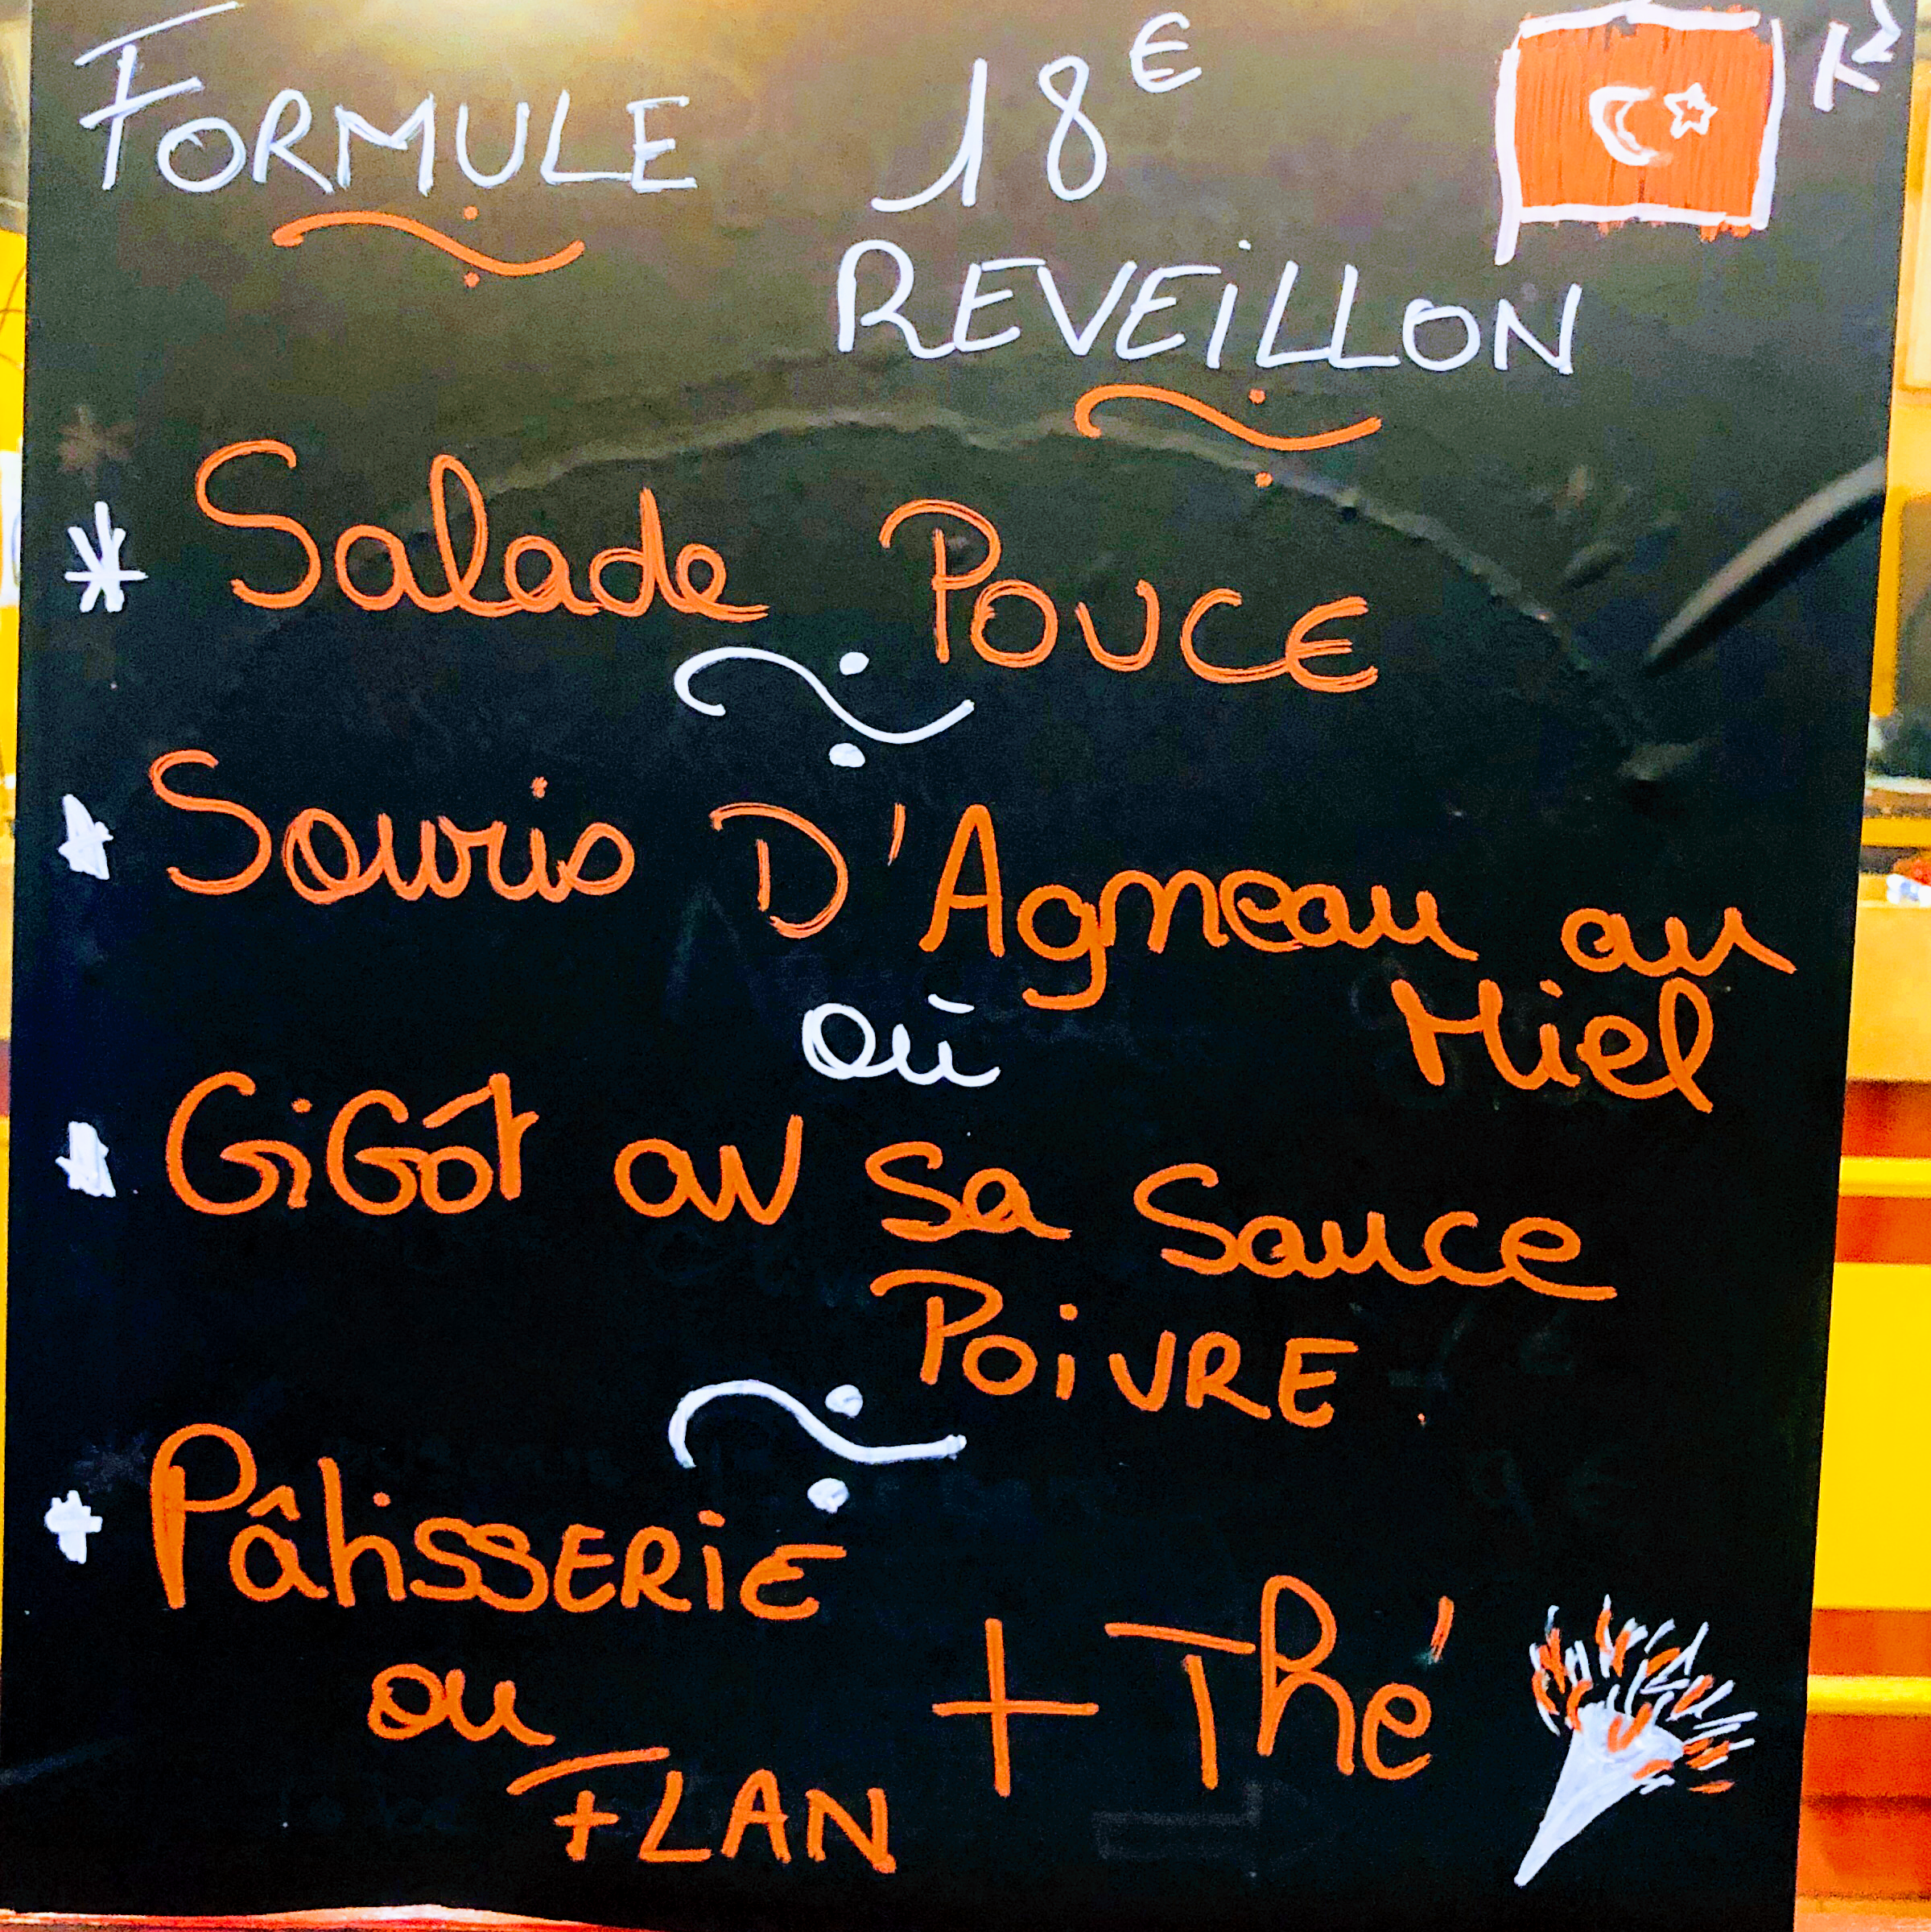 FORMULE 18€
REVEiLLON
* Salade POUCE
* Souris D'Agneau au
Miel
où
* GiGôt au Sa Sauce
POiVRE
* PâtisSERiE
ou + Thé
FLAN